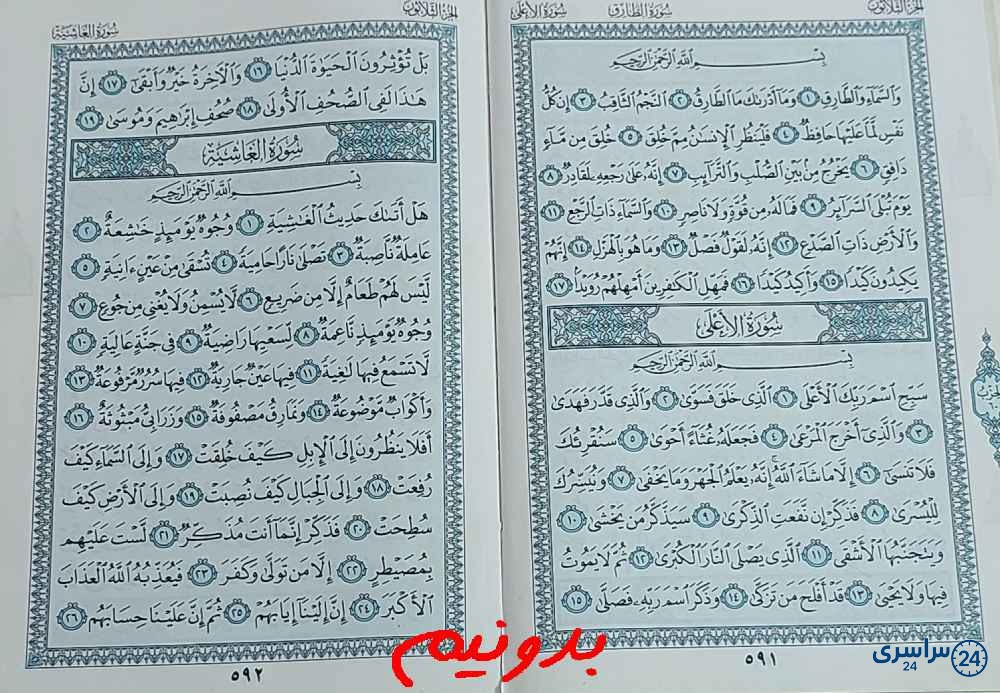 الجزء الثلاثون
سورة الطارق
سورة الأعلى
بِسْمِ اللَّهِ الرَّحْمَٰنِ الرَّحِيمِ
وَالسَّمَاءِ وَالطَّارِقِ ١ وَمَا أَدْرَىٰكَ مَا الطَّارِقُ ٢ النَّجْمُ الثَّاقِبُ ٣ إِن كُلُّ
نَفْسٍ لَّمَّا عَلَيْهَا حَافِظٌ ٤ فَلْيَنظُرِ الْإِنسَٰنُ مِمَّ خُلِقَ ٥ خُلِقَ مِن مَّاءٍ
دَافِقٍ ٦ يَخْرُجُ مِنۢ بَيْنِ الصُّلْبِ وَالتَّرَائِبِ ٧ إِنَّهُ عَلَىٰ رَجْعِهِ لَقَادِرٌ ٨
يَوْمَ تُبْلَى السَّرَائِرُ ٩ فَمَا لَهُ مِن قُوَّةٍ وَلَا نَاصِرٍ ١٠ وَالسَّمَاءِ ذَاتِ الرَّجْعِ ١١
وَالْأَرْضِ ذَاتِ الصَّدْعِ ١٢ إِنَّهُ لَقَوْلٌ فَصْلٌ ١٣ وَمَا هُوَ بِالْهَزْلِ ١٤ إِنَّهُمْ
يَكِيدُونَ كَيْدًا ١٥ وَأَكِيدُ كَيْدًا ١٦ فَمَهِّلِ الْكَٰفِرِينَ أَمْهِلْهُمْ رُوَيْدًا ١٧
سُورَةُ الأَعْلَى
بِسْمِ اللَّهِ الرَّحْمَٰنِ الرَّحِيمِ
سَبِّحِ اسْمَ رَبِّكَ الْأَعْلَى ١ الَّذِي خَلَقَ فَسَوَّىٰ ٢ وَالَّذِي قَدَّرَ فَهَدَىٰ
٣ وَالَّذِي أَخْرَجَ الْمَرْعَىٰ ٤ فَجَعَلَهُ غُثَاءً أَحْوَىٰ ٥ سَنُقْرِئُكَ
فَلَا تَنسَىٰ ٦ إِلَّا مَا شَاءَ اللَّهُ ۚ إِنَّهُ يَعْلَمُ الْجَهْرَ وَمَا يَخْفَىٰ ٧ وَنُيَسِّرُكَ
لِلْيُسْرَىٰ ٨ فَذَكِّرْ إِن نَّفَعَتِ الذِّكْرَىٰ ٩ سَيَذَّكَّرُ مَن يَخْشَىٰ ١٠
وَيَتَجَنَّبُهَا الْأَشْقَى ١١ الَّذِي يَصْلَى النَّارَ الْكُبْرَىٰ ١٢ ثُمَّ لَا يَمُوتُ
فِيهَا وَلَا يَحْيَىٰ ١٣ قَدْ أَفْلَحَ مَن تَزَكَّىٰ ١٤ وَذَكَرَ اسْمَ رَبِّهِ فَصَلَّىٰ ١٥
٥٩١
الجزء الثلاثون
سورة الغاشية
بَلْ تُؤْثِرُونَ الْحَيَوٰةَ الدُّنْيَا ١٦ وَالْآخِرَةُ خَيْرٌ وَأَبْقَىٰ ١٧ إِنَّ
هَٰذَا لَفِي الصُّحُفِ الْأُولَىٰ ١٨ صُحُفِ إِبْرَٰهِيمَ وَمُوسَىٰ ١٩
سُورَةُ الغَاشِيَةِ
بِسْمِ اللَّهِ الرَّحْمَٰنِ الرَّحِيمِ
هَلْ أَتَىٰكَ حَدِيثُ الْغَٰشِيَةِ ١ وُجُوهٌ يَوْمَئِذٍ خَٰشِعَةٌ ٢
عَامِلَةٌ نَّاصِبَةٌ ٣ تَصْلَىٰ نَارًا حَامِيَةً ٤ تُسْقَىٰ مِنْ عَيْنٍ ءَانِيَةٍ ٥
لَّيْسَ لَهُمْ طَعَامٌ إِلَّا مِن ضَرِيعٍ ٦ لَّا يُسْمِنُ وَلَا يُغْنِي مِن جُوعٍ ٧
وُجُوهٌ يَوْمَئِذٍ نَّاعِمَةٌ ٨ لِّسَعْيِهَا رَاضِيَةٌ ٩ فِي جَنَّةٍ عَالِيَةٍ ١٠
لَّا تَسْمَعُ فِيهَا لَٰغِيَةً ١١ فِيهَا عَيْنٌ جَارِيَةٌ ١٢ فِيهَا سُرُرٌ مَّرْفُوعَةٌ ١٣
وَأَكْوَابٌ مَّوْضُوعَةٌ ١٤ وَنَمَارِقُ مَصْفُوفَةٌ ١٥ وَزَرَابِيُّ مَبْثُوثَةٌ ١٦
أَفَلَا يَنظُرُونَ إِلَى الْإِبِلِ كَيْفَ خُلِقَتْ ١٧ وَإِلَى السَّمَاءِ كَيْفَ
رُفِعَتْ ١٨ وَإِلَى الْجِبَالِ كَيْفَ نُصِبَتْ ١٩ وَإِلَى الْأَرْضِ كَيْفَ
سُطِحَتْ ٢٠ فَذَكِّرْ إِنَّمَا أَنتَ مُذَكِّرٌ ٢١ لَّسْتَ عَلَيْهِم
بِمُصَيْطِرٍ ٢٢ إِلَّا مَن تَوَلَّىٰ وَكَفَرَ ٢٣ فَيُعَذِّبُهُ اللَّهُ الْعَذَابَ
الْأَكْبَرَ ٢٤ إِنَّ إِلَيْنَا إِيَابَهُمْ ٢٥ ثُمَّ إِنَّ عَلَيْنَا حِسَابَهُم ٢٦
٥٩٢
بدونیم
سراسری 24
24